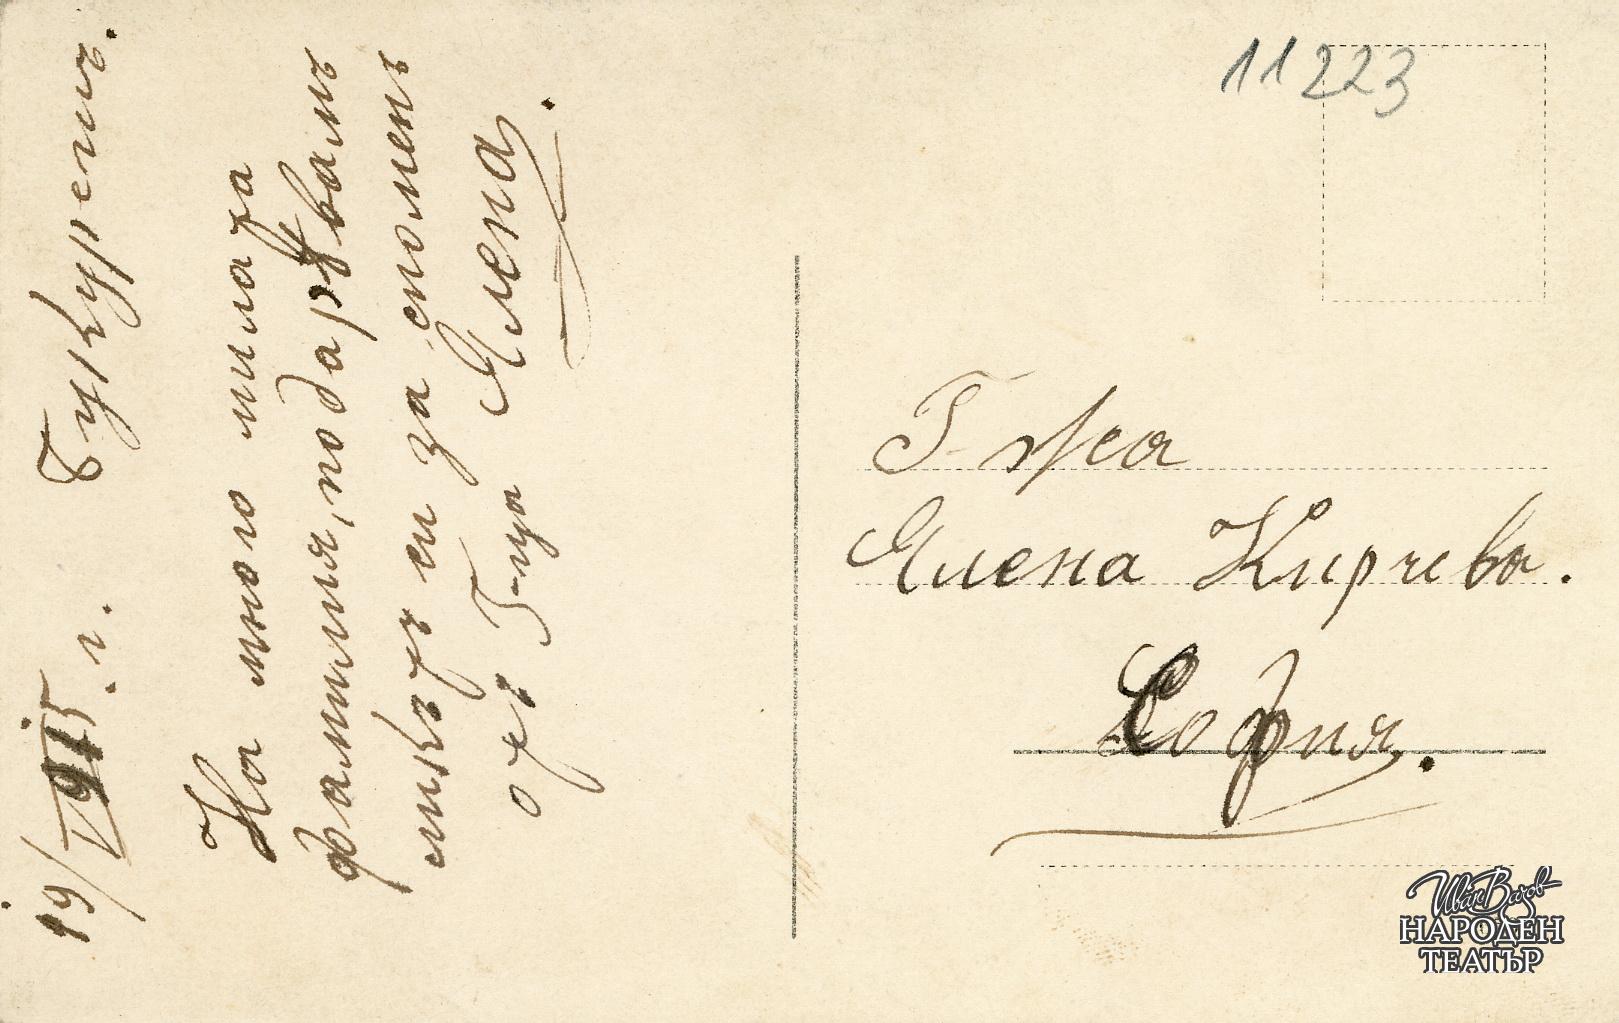 19/VI 915. г. Букурещъ.
На много милата
фамилия, подарявамъ
ликътъ си за споменъ
отъ Г-ца Елена.
11223
Г-жа
Елена Кирчева.
София.
Иван Вазов
НАРОДЕН
ТЕАТЪР